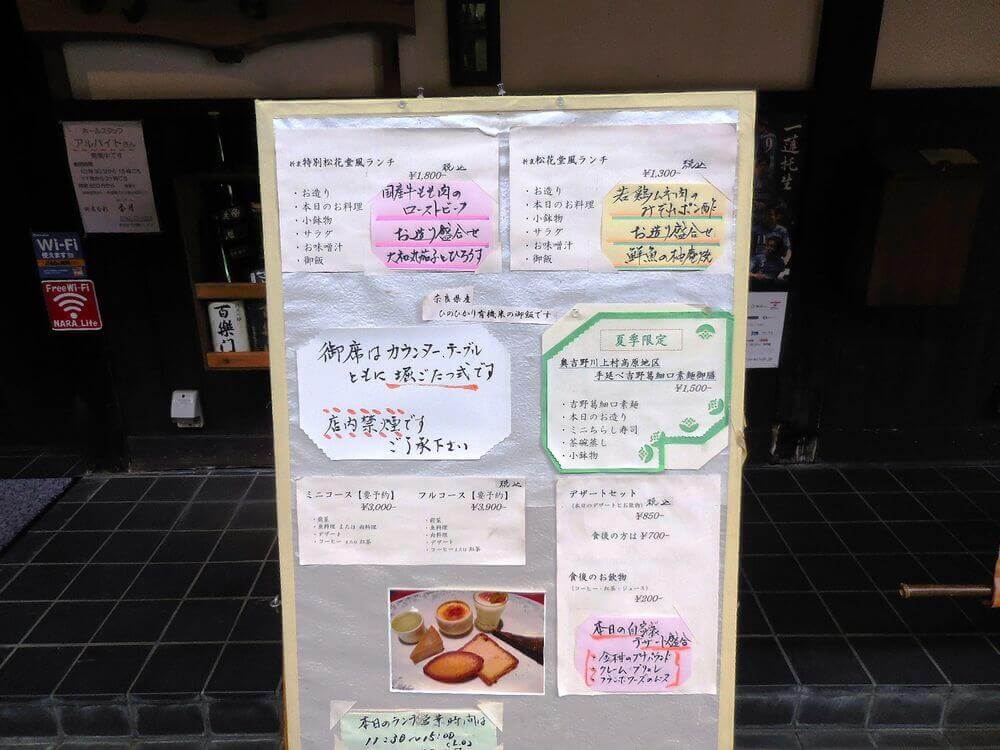 ホールスタッフ
アルバイトさん
募集中です
Wi-Fi
使えます
Free Wi-Fi
NARA_Lite
百樂門
一進托生
特別松花堂風ランチ
税込
¥1,800-
・お造り
・本日のお料理
・小鉢物
・サラダ
・お味噌汁
・御飯
国産牛もも肉の
ローストビーフ
お造り盛合せ
大和丸茄子とひろうす
松花堂風ランチ
税込
¥1,300-
・お造り
・本日のお料理
・小鉢物
・サラダ
・お味噌汁
・御飯
若鶏ムネ肉の
みぞれポン酢
お造り盛合せ
鮮魚の柚庵焼
奈良県産
ひのひかり有機米の御飯です
御席はカウンター、テーブル
ともに堀ごたつ式です
店内禁煙です
ご了承下さい
夏季限定
奥吉野川上村高原地区
手延べ吉野葛細口素麺御膳
¥1,500-
・吉野葛細口素麺
・本日のお造り
・ミニちらし寿司
・茶碗蒸し
・小鉢物
税込
ミニコース【要予約】
¥3,000-
・前菜
・魚料理 または 肉料理
・デザート
・コーヒー または 紅茶
フルコース【要予約】
¥3,900-
・前菜
・魚料理
・肉料理
・デザート
・コーヒー または 紅茶
デザートセット
(本日のデザートとお飲物)
税込
¥850-
食後の方は ¥700-
食後のお飲物
(コーヒー・紅茶・ジュース)
¥200-
本日の自家製
デザート盛合
・金柑のプチパウンド
・クレームブリュレ
・フランボワーズのムース
本日のランチ営業時間は
11:30~15:00